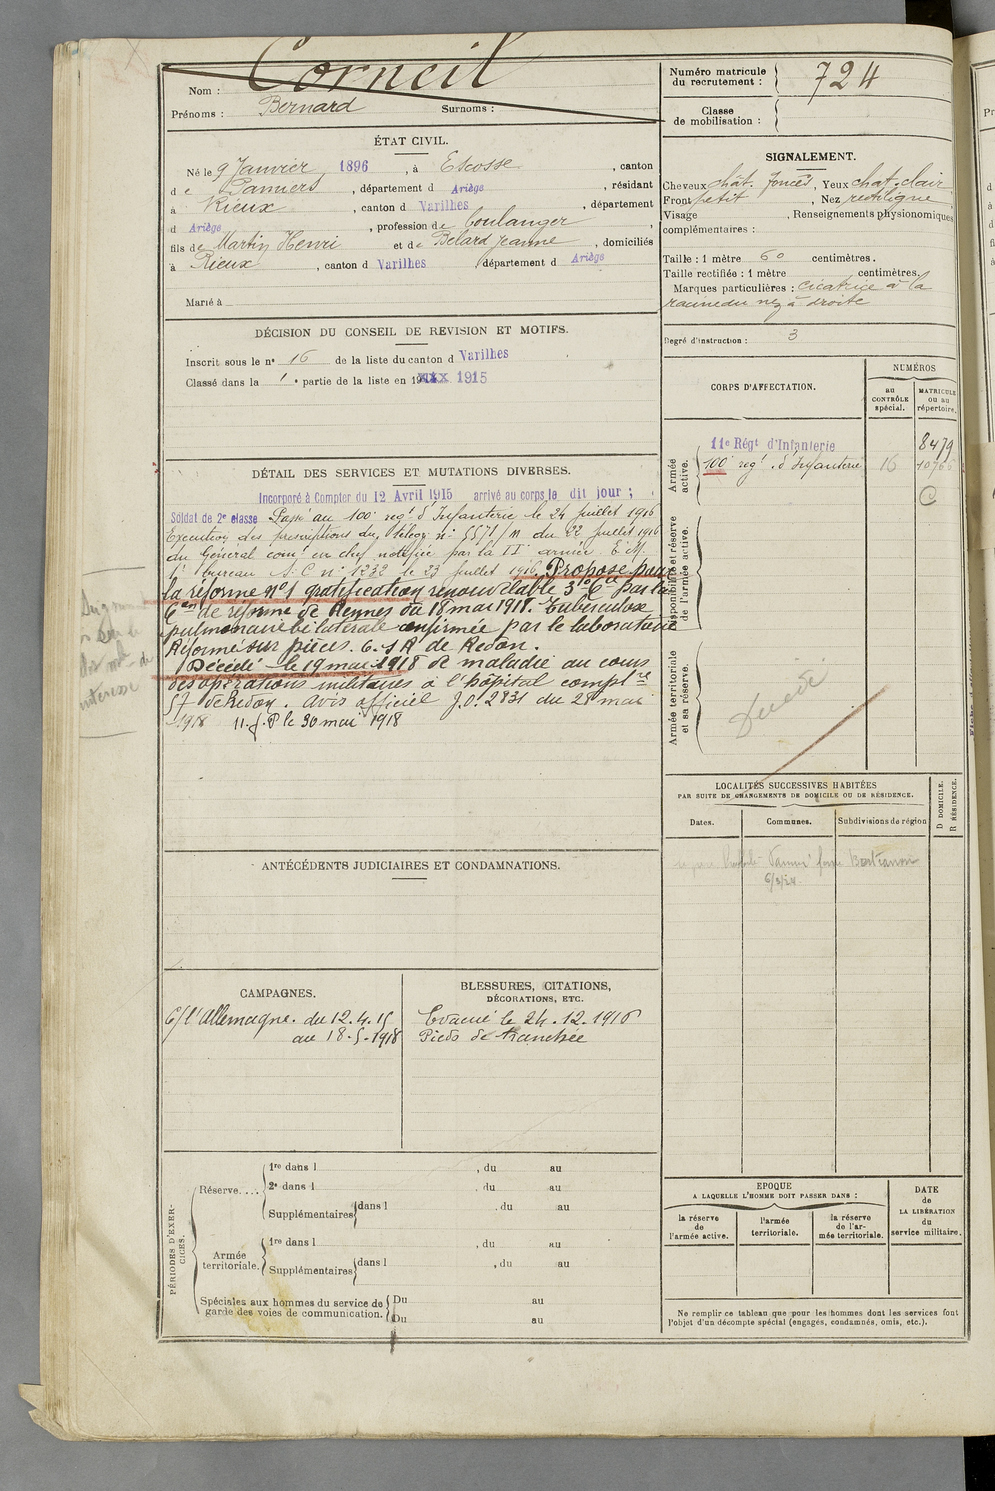 Nom : Corneil
Prénoms : Bernard Surnoms :
Numéro matricule du recrutement : 724
Classe de mobilisation :
ÉTAT CIVIL.
Né le 9 Janvier 1896, à Escosse, canton
de Pamiers, département d Ariège, résidant
à Rieux, canton d Varilhes, département
d Ariège, profession de boulanger,
fils de Martin Henri et de Bélard Jeanne, domiciliés
à Rieux, canton d Varilhes, département d Ariège
Marié à
DÉCISION DU CONSEIL DE REVISION ET MOTIFS.
Inscrit sous le n° 16 de la liste du canton d Varilhes
Classé dans la 1e partie de la liste en 19 1915
DÉTAIL DES SERVICES ET MUTATIONS DIVERSES.
Incorporé à Compter du 12 Avril 1915 arrivé au corps le dit jour ;
Soldat de 2e classe Passé au 100e regt d'Infanterie le 24 juillet 1916
Execution des prescriptions du télég n° 5571/M du 22 juillet 1916
du Général comt en chef notifiée par la II armée E.M.
1r bureau S.C n° 1232 le 23 juillet 1916. Proposé pour
la réforme n°1 gratification renouvelable 3e cie par la
Con de réforme de Rennes du 18 mai 1918. Tuberculose
pulmonaire bilatérale confirmée par le laboratoire
Réformé sur pièces. C.S R de Redon.
Décédé le 19 mai 1918 de maladie au cours
des opérations militaires à l'hôpital complre
57 de Redon. Avis officiel J.O. 2831 du 28 mai
1918 le 30 mai 1918
ANTÉCÉDENTS JUDICIAIRES ET CONDAMNATIONS.
CAMPAGNES.
C/ l'Allemagne. du 12.4.15
au 18.5.1918
BLESSURES, CITATIONS,
DÉCORATIONS, ETC.
Evacué le 24.12.1916
Pieds de tranchée
PÉRIODES D'EXERCICES.
Réserve....
1re dans l , du au
2e dans l , du au
Supplémentaires dans l , du au
Armée territoriale.
1re dans l , du au
Supplémentaires dans l , du au
Spéciales aux hommes du service de garde des voies de communication.
Du au
Du au
SIGNALEMENT.
Cheveux chât. foncés, Yeux chat. clair
Front petit, Nez rectiligne
Visage , Renseignements physionomiques
complémentaires :
Taille : 1 mètre 60 centimètres.
Taille rectifiée : 1 mètre centimètres.
Marques particulières : cicatrice à la
du nez à droite
Degré d'instruction : 3
CORPS D'AFFECTATION.
NUMÉROS
au CONTRÔLE spécial.
MATRICULE ou au répertoire.
Armée active.
11e Régt d'Infanterie 8479
100e regt d'Infanterie 16
C
Disponibilité et réserve de l'armée active.
Armée territoriale et sa réserve.
Décédé
LOCALITÉS SUCCESSIVES HABITÉES
PAR SUITE DE CHANGEMENTS DE DOMICILE OU DE RÉSIDENCE.
Dates.
Communes.
Subdivisions de région
D DOMICILE.
R RÉSIDENCE.
EPOQUE
A LAQUELLE L'HOMME DOIT PASSER DANS :
la réserve de l'armée active.
l'armée territoriale.
la réserve de l'armée territoriale.
DATE de LA LIBÉRATION du service militaire.
Ne remplir ce tableau que pour les hommes dont les services font
l'objet d'un décompte spécial (engagés, condamnés, omis, etc.).